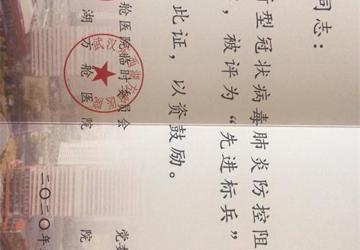 同志：
型冠状病毒肺炎防控阻
，被评为“先进标兵”
此证，以资鼓励。
党委
舱医院临时委员会
院
湖方舱医院
二〇二〇年